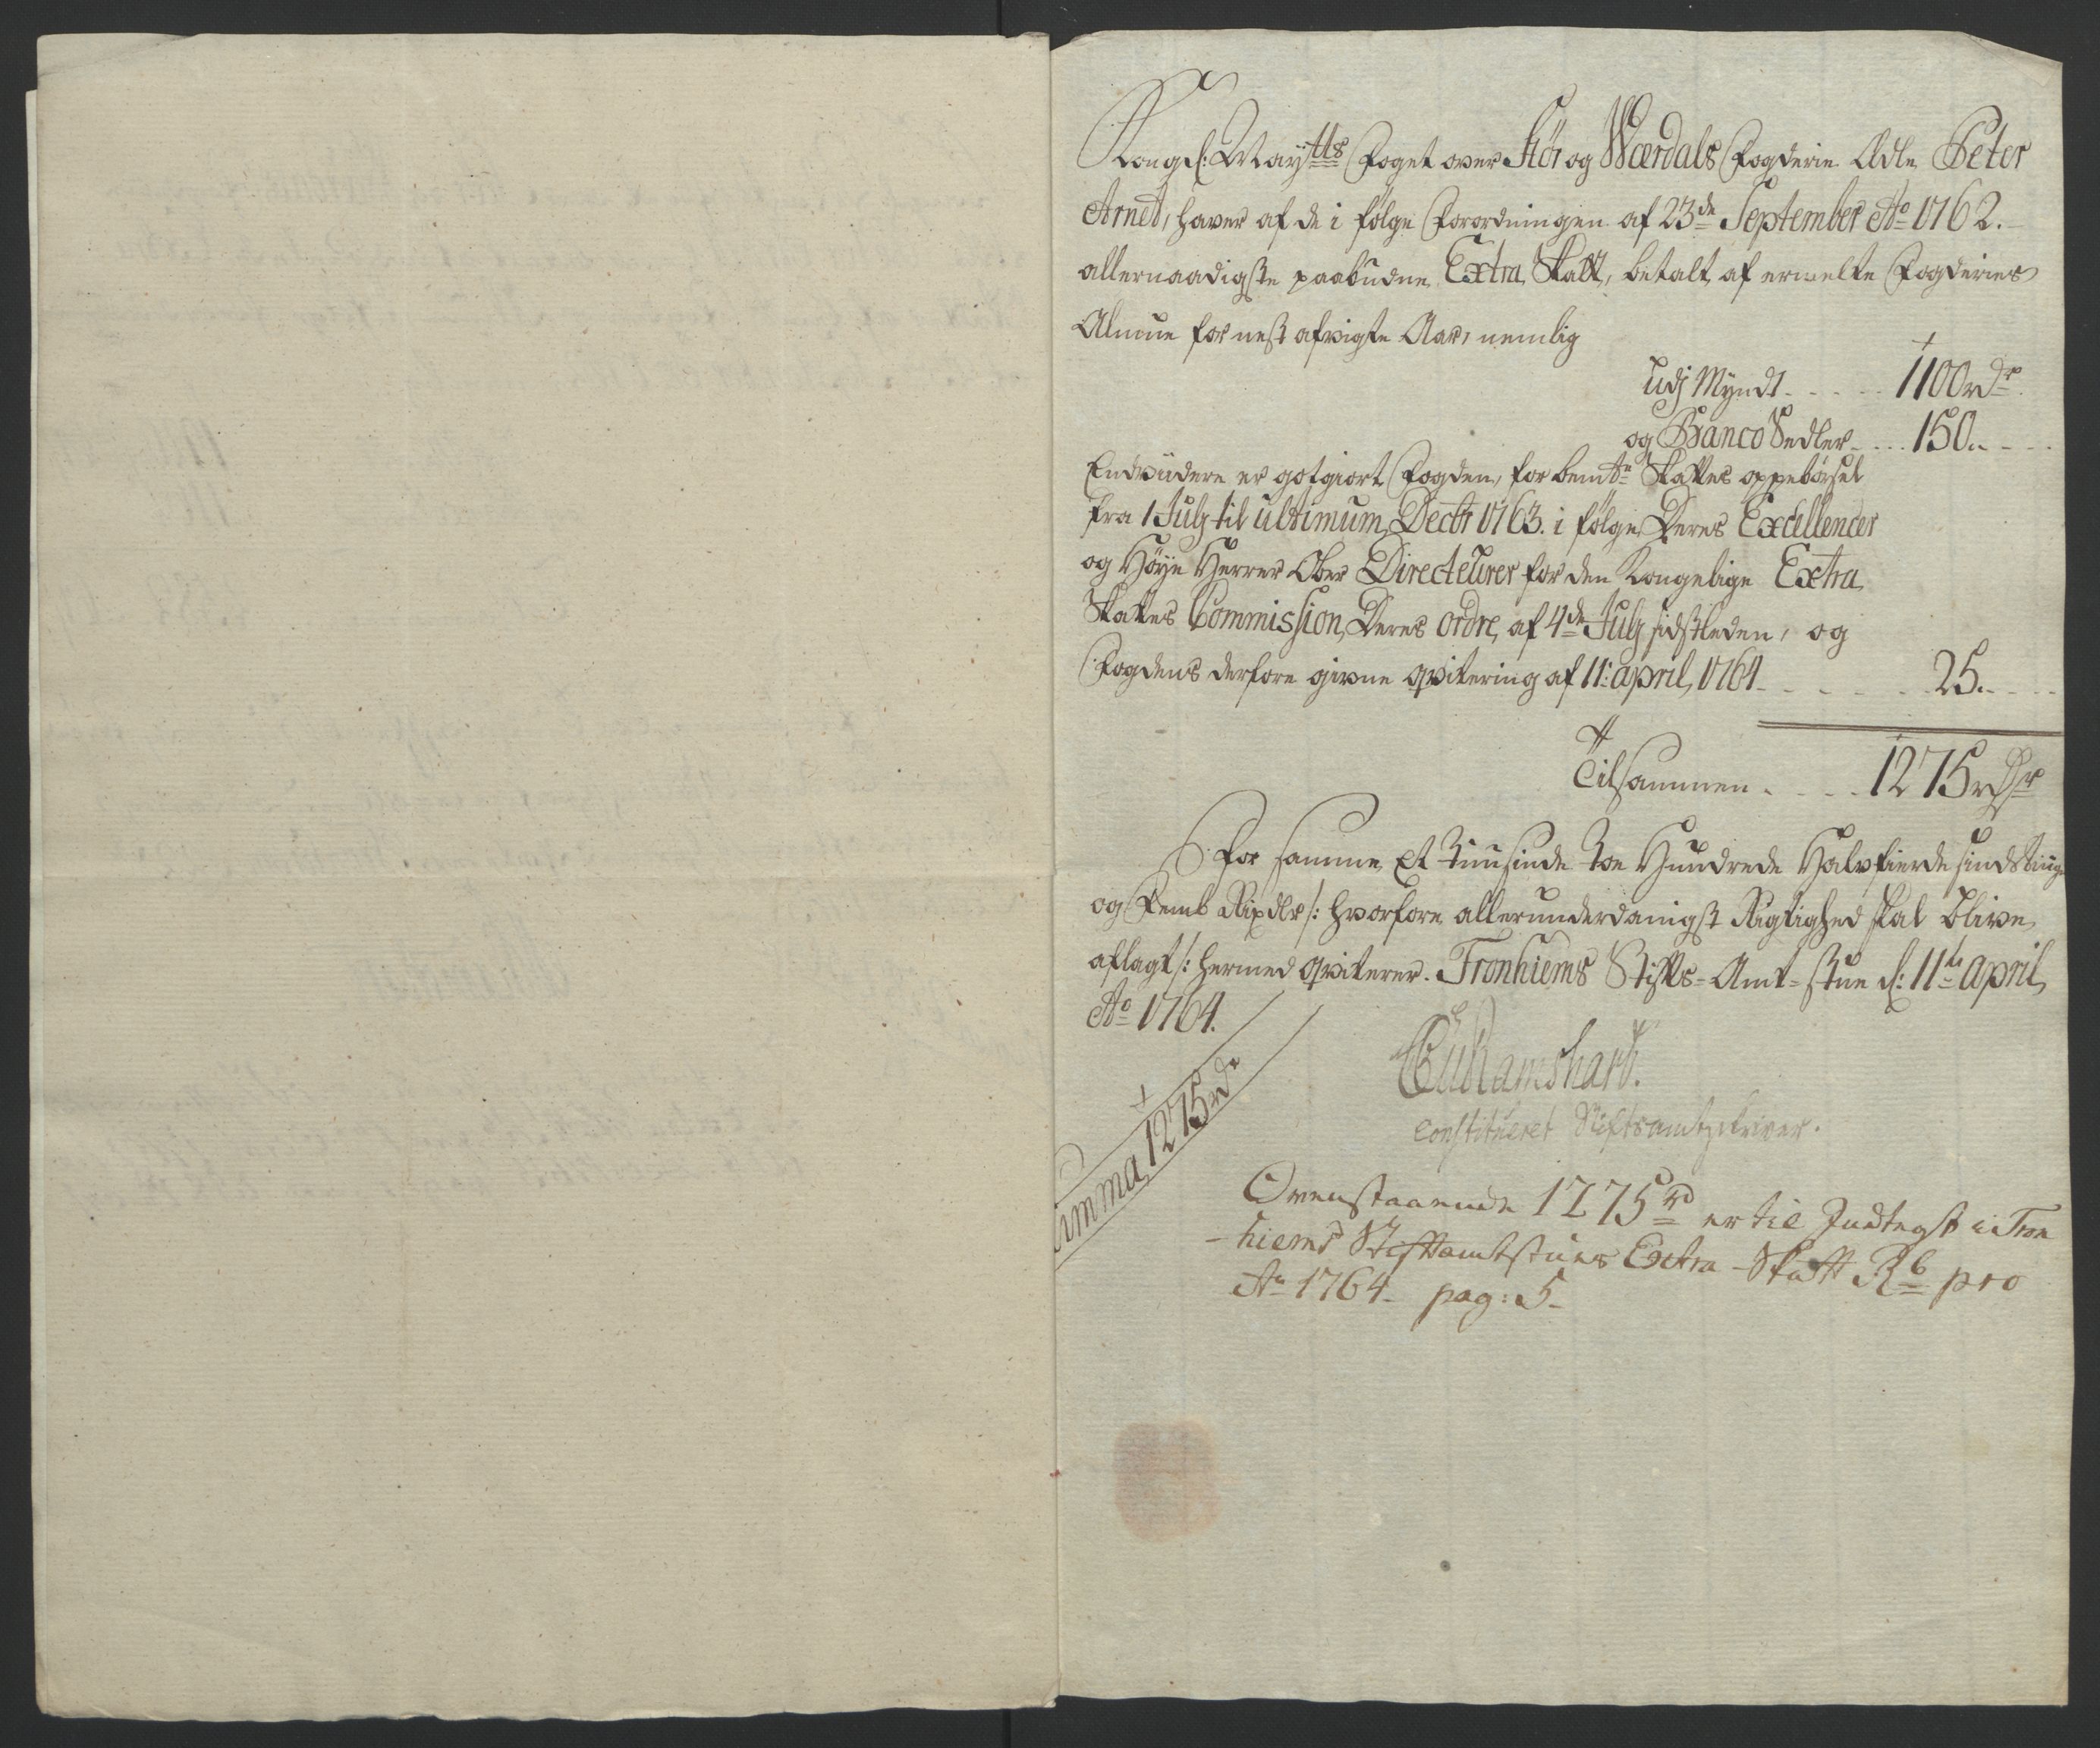 Kongl: Maytts Foget over Stør og Wærdals Fogderie Adle Peter
Arnet, haver af de i følge Forordningen af 23de September Ao 1762.
allernaadigste paabudne Extra Skatt, betalt af ermelte Fogderies
Almue for nest afvigte Aar, nemlig
udj Myndt - - - - 1100 rdr
og Banco Sedler - - - 150 - - -
Endvidere er gotgiort Fogden, for bemte Skattes oppebørsel
fra 1 July til ultimum Decbr 1763. i følge Deres Excellencer
og Høye Herrer Ober Directeurer for den Kongelige Extra
Skattes Commission, Deres ordre, af 4de July sidstleden, og
Fogdens derfore givne qvitering af 11: april, 1764 - - - - - - 25. - - -
Tilsammen - - - - 1275 rdr
For samme Et tuusinde toe Hundrede Halvfierdesindstiuge
og Femb Rixdlr /: hvorfore allerunderdanigst Rigtighed skal blive
aflagt :/ hermed qviterer. Tronhiems Stifts-Amt-stue d: 11te april,
Ao 1764.
Ramshart.
constitueret Stiftsamtskriver.
Summa 1275 rd
Ovenstaaende 1275 rd er til Indtegt i Tron
-hiems Stiftamtstues Extra-Skatt Rb pro
Ao 1764 - pag: 5 -